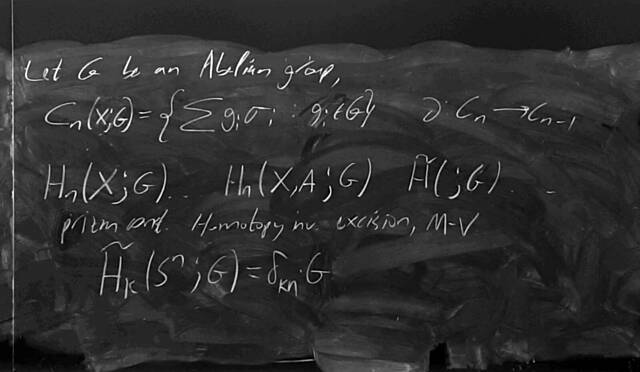 Let G be an Abelian group,
C_n(X;G) = { Σ g_i σ_i : g_i ∈ G } ∂: C_n → C_{n-1}
H_n(X;G).. H_n(X,A;G) H̃(;G). ..
prism const. Homotopy inv. excision, M-V
H̃_k(S^n;G) = δ_{kn}·G